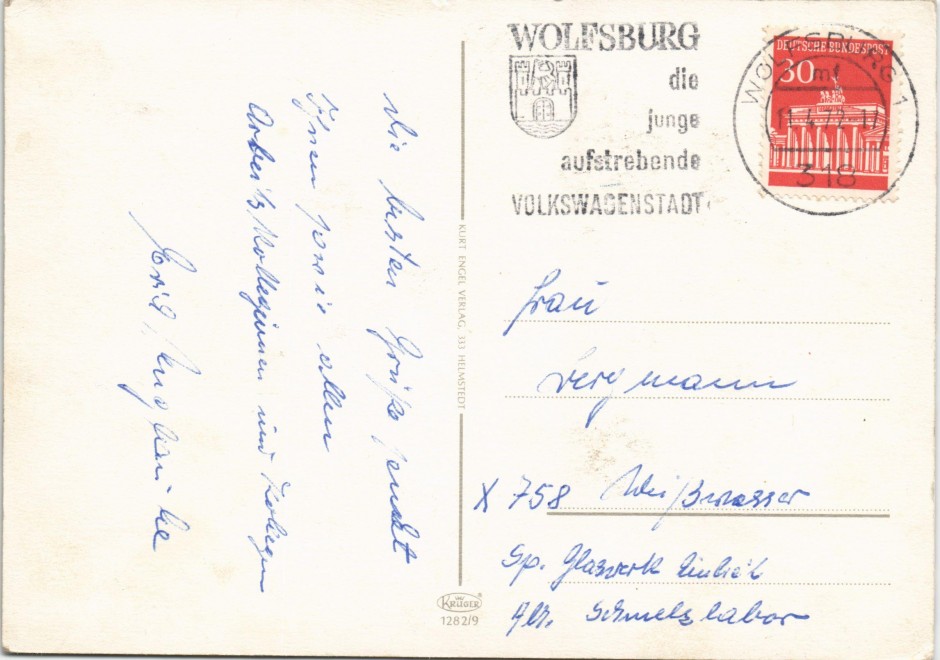 Die besten Grüße sendet
Ihnen sowie allen
Arbeitskolleginnen und Kollegen
WOLFSBURG
die
junge
aufstrebende
VOLKSWAGENSTADT
DEUTSCHE BUNDESPOST
30
WOLFSBURG 1
mf
318
KURT ENGEL VERLAG, 333 HELMSTEDT
Frau
Bergmann
X 758 Weißwasser
Sp. Glaswerk
Abt. Schmelzlabor
KRÜGER
1282/9